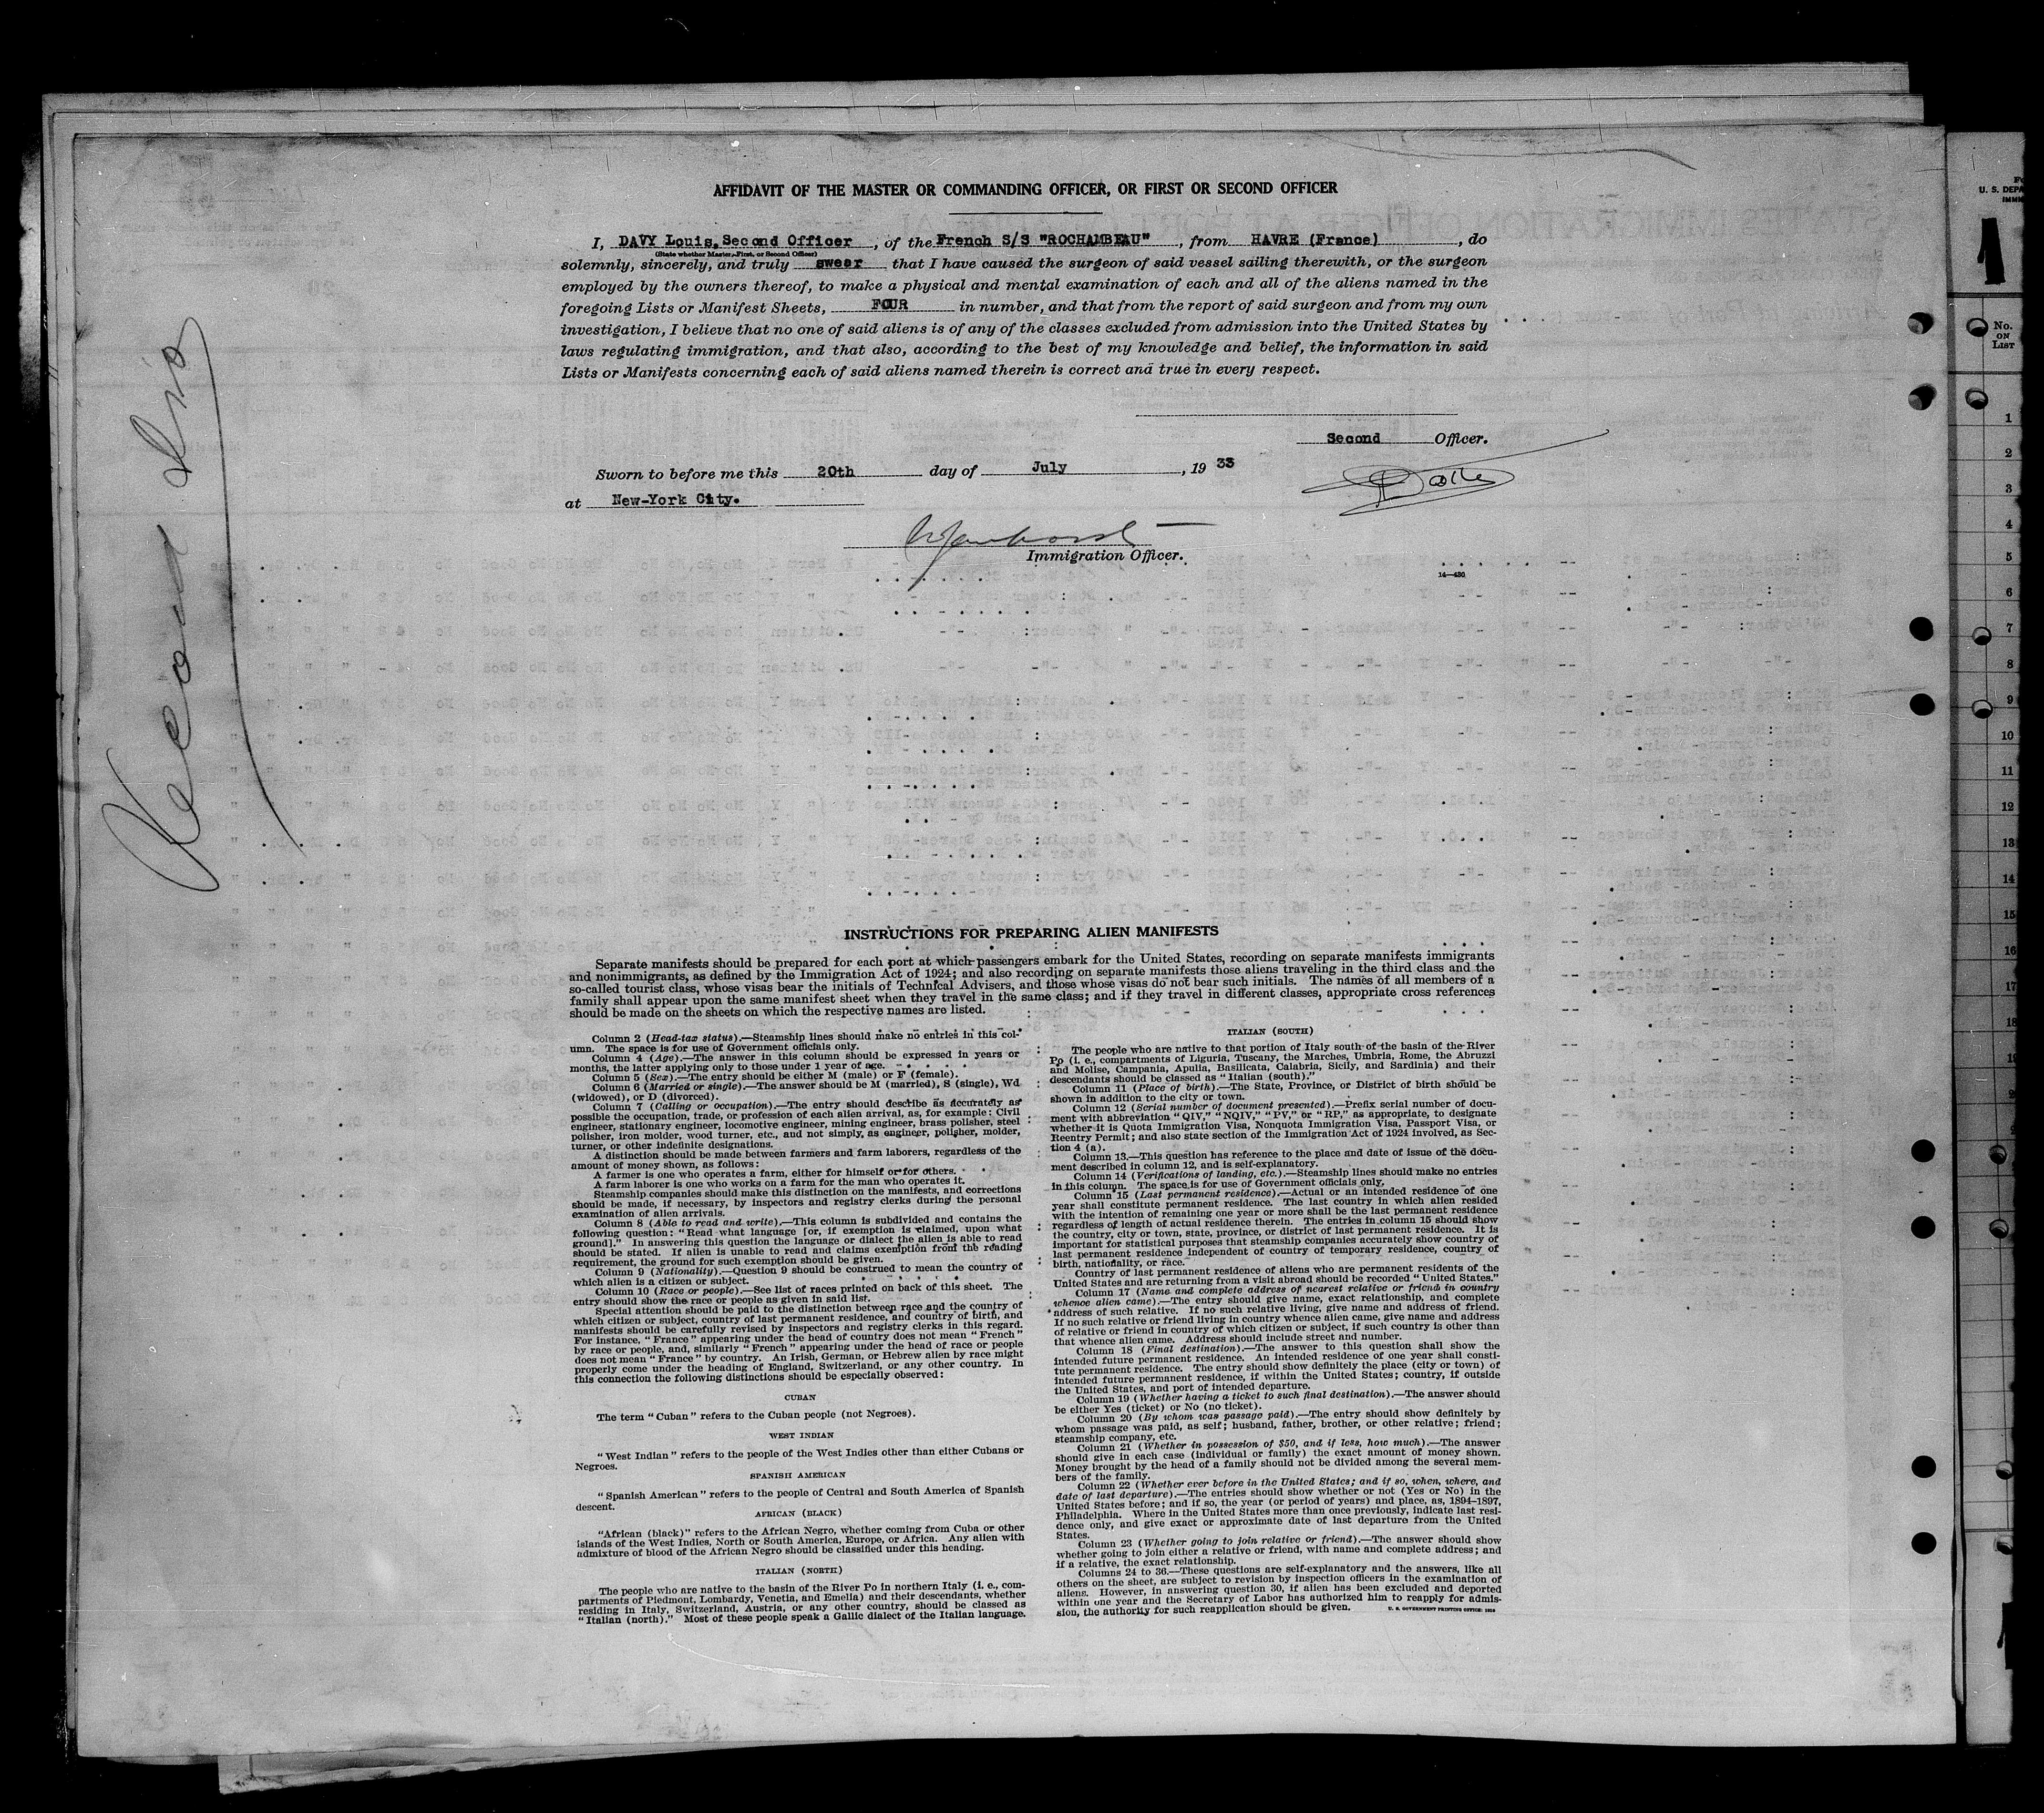 AFFIDAVIT OF THE MASTER OR COMMANDING OFFICER, OR FIRST OR SECOND OFFICER
I, DAVY Louis, Second Officer, of the French S/S "ROCHAMBEAU", from HAVRE (France), do
(State whether Master, First, or Second Officer)
solemnly, sincerely, and truly swear that I have caused the surgeon of said vessel sailing therewith, or the surgeon
employed by the owners thereof, to make a physical and mental examination of each and all of the aliens named in the
foregoing Lists or Manifest Sheets, FOUR in number, and that from the report of said surgeon and from my own
investigation, I believe that no one of said aliens is of any of the classes excluded from admission into the United States by
laws regulating immigration, and that also, according to the best of my knowledge and belief, the information in said
Lists or Manifests concerning each of said aliens named therein is correct and true in every respect.
Second Officer.
Sworn to before me this 20th day of July, 19 33
at New-York City.
Immigration Officer.
14—430
INSTRUCTIONS FOR PREPARING ALIEN MANIFESTS
Separate manifests should be prepared for each port at which passengers embark for the United States, recording on separate manifests immigrants
and nonimmigrants, as defined by the Immigration Act of 1924; and also recording on separate manifests those aliens traveling in the third class and the
so-called tourist class, whose visas bear the initials of Technical Advisers, and those whose visas do not bear such initials. The names of all members of a
family shall appear upon the same manifest sheet when they travel in the same class; and if they travel in different classes, appropriate cross references
should be made on the sheets on which the respective names are listed.
Column 2 (Head-tax status).—Steamship lines should make no entries in this col-
umn. The space is for use of Government officials only.
Column 4 (Age).—The answer in this column should be expressed in years or
months, the latter applying only to those under 1 year of age.
Column 5 (Sex).—The entry should be either M (male) or F (female).
Column 6 (Married or single).—The answer should be M (married), S (single), Wd
(widowed), or D (divorced).
Column 7 (Calling or occupation).—The entry should describe as accurately as
possible the occupation, trade, or profession of each alien arrival, as, for example: Civil
engineer, stationary engineer, locomotive engineer, mining engineer, brass polisher, steel
polisher, iron molder, wood turner, etc., and not simply, as engineer, polisher, molder,
turner, or other indefinite designations.
A distinction should be made between farmers and farm laborers, regardless of the
amount of money shown, as follows:
A farmer is one who operates a farm, either for himself or for others.
A farm laborer is one who works on a farm for the man who operates it.
Steamship companies should make this distinction on the manifests, and corrections
should be made, if necessary, by inspectors and registry clerks during the personal
examination of alien arrivals.
Column 8 (Able to read and write).—This column is subdivided and contains the
following question: "Read what language [or, if exemption is claimed, upon what
ground]." In answering this question the language or dialect the alien is able to read
should be stated. If alien is unable to read and claims exemption from the reading
requirement, the ground for such exemption should be given.
Column 9 (Nationality).—Question 9 should be construed to mean the country of
which alien is a citizen or subject.
Column 10 (Race or people).—See list of races printed on back of this sheet. The
entry should show the race or people as given in said list.
Special attention should be paid to the distinction between race and the country of
which citizen or subject, country of last permanent residence, and country of birth, and
manifests should be carefully revised by inspectors and registry clerks in this regard.
For instance, "France" appearing under the head of country does not mean "French"
by race or people, and, similarly "French" appearing under the head of race or people
does not mean "France" by country. An Irish, German, or Hebrew alien by race might
properly come under the heading of England, Switzerland, or any other country. In
this connection the following distinctions should be especially observed:
CUBAN
The term "Cuban" refers to the Cuban people (not Negroes).
WEST INDIAN
"West Indian" refers to the people of the West Indies other than either Cubans or
Negroes.
SPANISH AMERICAN
"Spanish American" refers to the people of Central and South America of Spanish
descent.
AFRICAN (BLACK)
"African (black)" refers to the African Negro, whether coming from Cuba or other
islands of the West Indies, North or South America, Europe, or Africa. Any alien with
admixture of blood of the African Negro should be classified under this heading.
ITALIAN (NORTH)
The people who are native to the basin of the River Po in northern Italy (i. e., com-
partments of Piedmont, Lombardy, Venetia, and Emelia) and their descendants, whether
residing in Italy, Switzerland, Austria, or any other country, should be classed as
"Italian (north)." Most of these people speak a Gallic dialect of the Italian language.
ITALIAN (SOUTH)
The people who are native to that portion of Italy south of the basin of the River
Po (i. e., compartments of Liguria, Tuscany, the Marches, Umbria, Rome, the Abruzzi
and Molise, Campania, Apulia, Basilicata, Calabria, Sicily, and Sardinia) and their
descendants should be classed as "Italian (south)."
Column 11 (Place of birth).—The State, Province, or District of birth should be
shown in addition to the city or town.
Column 12 (Serial number of document presented).—Prefix serial number of docu-
ment with abbreviation "QIV," "NQIV," "PV," or "RP," as appropriate, to designate
whether it is Quota Immigration Visa, Nonquota Immigration Visa, Passport Visa, or
Reentry Permit; and also state section of the Immigration Act of 1924 involved, as Sec-
tion 4 (a).
Column 13.—This question has reference to the place and date of issue of the docu-
ment described in column 12, and is self-explanatory.
Column 14 (Verifications of landing, etc.).—Steamship lines should make no entries
in this column. The space is for use of Government officials only.
Column 15 (Last permanent residence).—Actual or an intended residence of one
year shall constitute permanent residence. The last country in which alien resided
with the intention of remaining one year or more shall be the last permanent residence
regardless of length of actual residence therein. The entries in column 15 should show
the country, city or town, state, province, or district of last permanent residence. It is
important for statistical purposes that steamship companies accurately show country of
last permanent residence independent of country of temporary residence, country of
birth, nationality, or race.
Country of last permanent residence of aliens who are permanent residents of the
United States and are returning from a visit abroad should be recorded "United States."
Column 17 (Name and complete address of nearest relative or friend in country
whence alien came).—The entry should give name, exact relationship, and complete
address of such relative. If no such relative living, give name and address of friend.
If no such relative or friend living in country whence alien came, give name and address
of relative or friend in country of which citizen or subject, if such country is other than
that whence alien came. Address should include street and number.
Column 18 (Final destination).—The answer to this question shall show the
intended future permanent residence. An intended residence of one year shall consti-
tute permanent residence. The entry should show definitely the place (city or town) of
intended future permanent residence, if within the United States; country, if outside
the United States, and port of intended departure.
Column 19 (Whether having a ticket to such final destination).—The answer should
be either Yes (ticket) or No (no ticket).
Column 20 (By whom was passage paid).—The entry should show definitely by
whom passage was paid, as self; husband, father, brother, or other relative; friend;
steamship company, etc.
Column 21 (Whether in possession of $50, and if less, how much).—The answer
should give in each case (individual or family) the exact amount of money shown.
Money brought by the head of a family should not be divided among the several mem-
bers of the family.
Column 22 (Whether ever before in the United States; and if so, when, where, and
date of last departure).—The entries should show whether or not (Yes or No) in the
United States before; and if so, the year (or period of years) and place, as, 1894–1897,
Philadelphia. Where in the United States more than once previously, indicate last resi-
dence only, and give exact or approximate date of last departure from the United
States.
Column 23 (Whether going to join relative or friend).—The answer should show
whether going to join either a relative or friend, with name and complete address; and
if a relative, the exact relationship.
Columns 24 to 36.—These questions are self-explanatory and the answers, like all
others on the sheet, are subject to revision by inspection officers in the examination of
aliens. However, in answering question 30, if alien has been excluded and deported
within one year and the Secretary of Labor has authorized him to reapply for admis-
sion, the authority for such reapplication should be given.
U. S. GOVERNMENT PRINTING OFFICE
U. S. DEPA
1
No.
ON
LIST
1
2
3
4
5
6
7
8
9
10
11
12
13
14
15
16
17
18